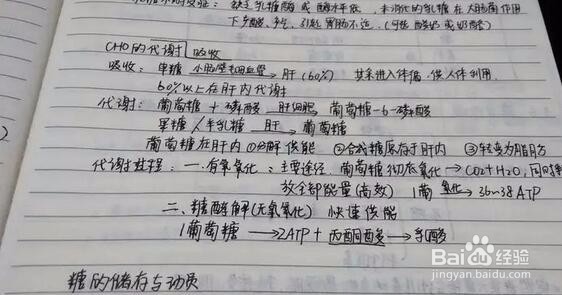 缺乏乳糖酶或酶水平低，未消化的乳糖在大肠菌作用
下产酸、产气，引起胃肠不适。(可选酸奶或奶酪)
CHO的代谢 吸收
吸收：单糖 小肠壁毛细血管→肝(60%) 其余进入体循，供人体利用.
60%以上在肝内代谢
代谢：葡萄糖 + 磷酸 肝细胞→ 葡萄糖-6-磷酸
果糖/半乳糖 肝→ 葡萄糖
葡萄糖在肝内 ①分解供能 ②合成糖原存于肝内 ③转变为脂肪
代谢过程：一.有氧氧化：主要途径. 葡萄糖彻底氧化→CO2+H2O, 同时释
放全部能量(高效) 1葡 氧化→ 36~38ATP
二、糖酵解(无氧氧化) 快速供能
1葡萄糖 → 2ATP + 丙酮酸 → 乳酸
糖的储存与动员
Bai 经验
jingyan.baidu.com